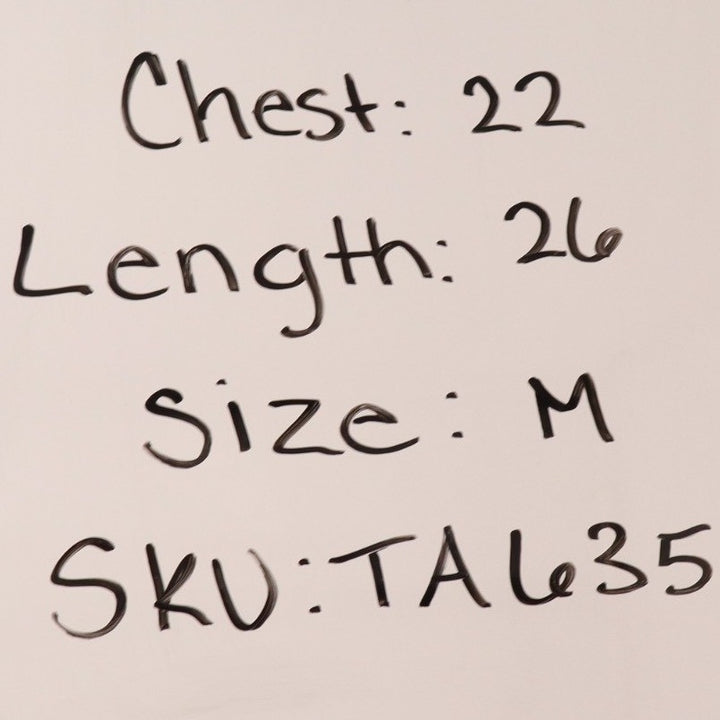 Chest: 22
Length: 26
Size: M
SKU: TA635